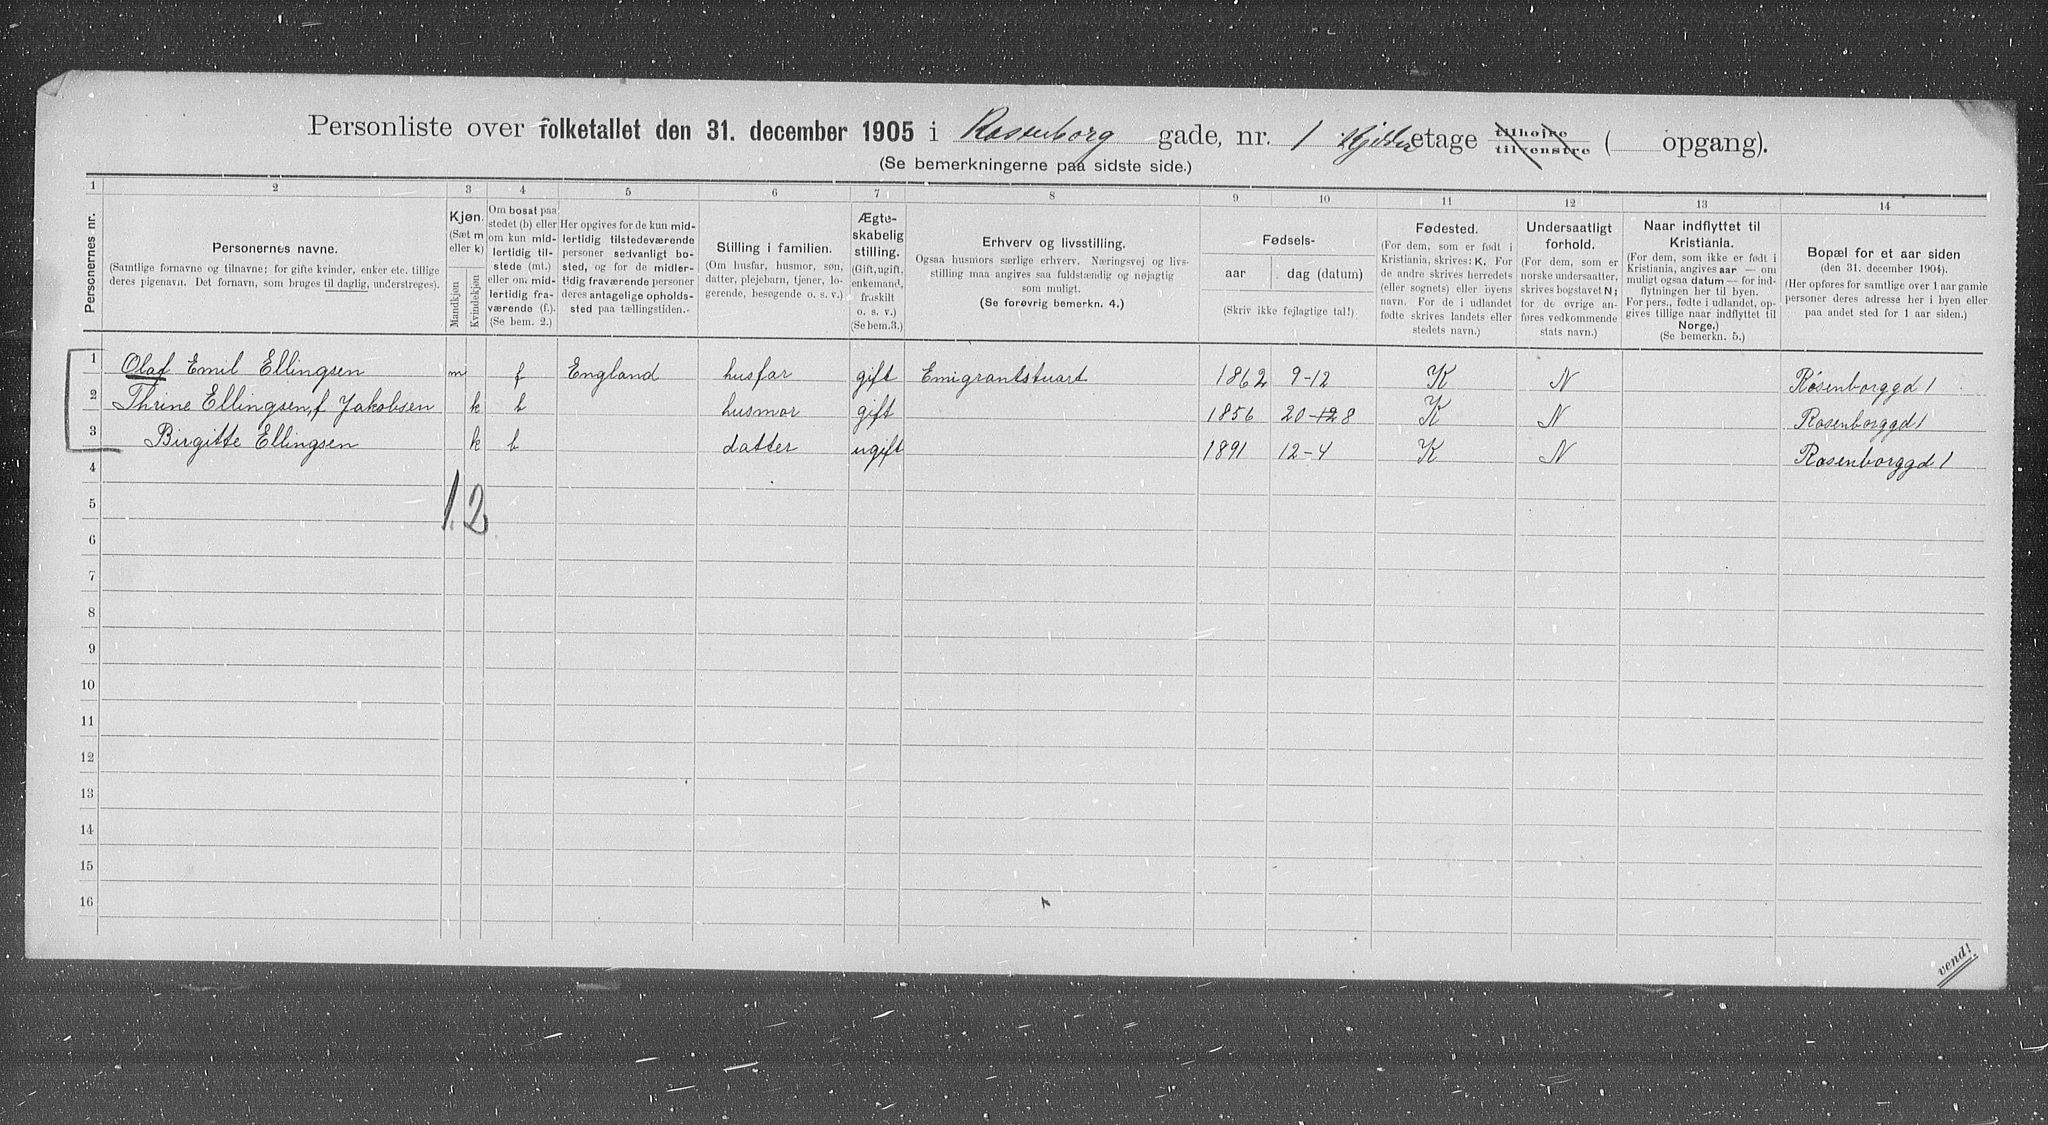 Personliste over folketallet den 31. december 1905 i Rosenborg gade, nr. 1 Kjelder etage tilhøjre tilvenstre ( opgang).
(Se bemerkningerne paa sidste side.)
1 2 3 4 5 6 7 8 9 10 11 12 13 14
Personernes nr.
Personernes navne.
(Samtlige fornavne og tilnavne; for gifte kvinder, enker etc. tillige
deres pigenavn. Det fornavn, som bruges til daglig, understreges).
Kjøn.
(Sæt m
eller k)
Mandkjøn
Kvindekjøn
Om bosat paa
stedet (b) eller
om kun mid-
lertidig til-
stede (mt.)
eller om mid-
lertidig fra-
værende (f.).
(Se bem. 2.)
Her opgives for de kun mid-
lertidig tilstedeværende
personer sedvanligt bo-
sted, og for de midler-
tidig fraværende personer
deres antagelige opholds-
sted paa tællingstiden.
Stilling i familien.
(Om husfar, husmor, søn,
datter, plejebarn, tjener, lo-
gerende, besøgende o. s. v.)
Ægte-
skabelig
stilling.
(Gift, ugift,
enkemand,
fraskilt
o. s. v.)
(Se bem.3.)
Erhverv og livsstilling.
Ogsaa husmors særlige erhverv. Næringsvej og livs-
stilling maa angives saa fuldstændig og nøjagtig
som muligt.
(Se forøvrig bemerkn. 4.)
Fødsels-
aar dag (datum)
(Skriv ikke fejlagtige tal!).
Fødested.
(For dem, som er født i
Kristiania, skrives: K. For
de andre skrives herredets
(eller sognets) eller byens
navn. For de i udlandet
fødte skrives landets eller
stedets navn.)
Undersaatligt
forhold.
(For dem, som er
norske undersaatter,
skrives bogstavet N;
for de øvrige an-
føres vedkommende
stats navn.)
Naar indflyttet til
Kristiania.
(For dem, som ikke er født i
Kristiania, angives aar — om
muligt ogsaa datum — for ind-
flytningen her til byen.
For pers., fødte i udlandet, op-
gives tillige naar indflyttet til
Norge.)
(Se bemerkn. 5.)
Bopæl for et aar siden
(den 31. december 1904).
(Her opføres for samtlige over 1 aar gamle
personer deres adresse her i byen eller
paa andet sted for 1 aar siden.)
1 Olaf Emil Ellingsen m f England husfar gift Emigrantstuart 1862 9-12 K N Rosenborggd 1
2 Thrine Ellingsen, f Jakobsen k b husmor gift 1856 20-12 8 K N Rosenborggd 1
3 Birgitte Ellingsen k b datter ugift 1891 12-4 K N Rosenborggd 1
4
1. 2
5
6
7
8
9
10
11
12
13
14
15
16
vend!